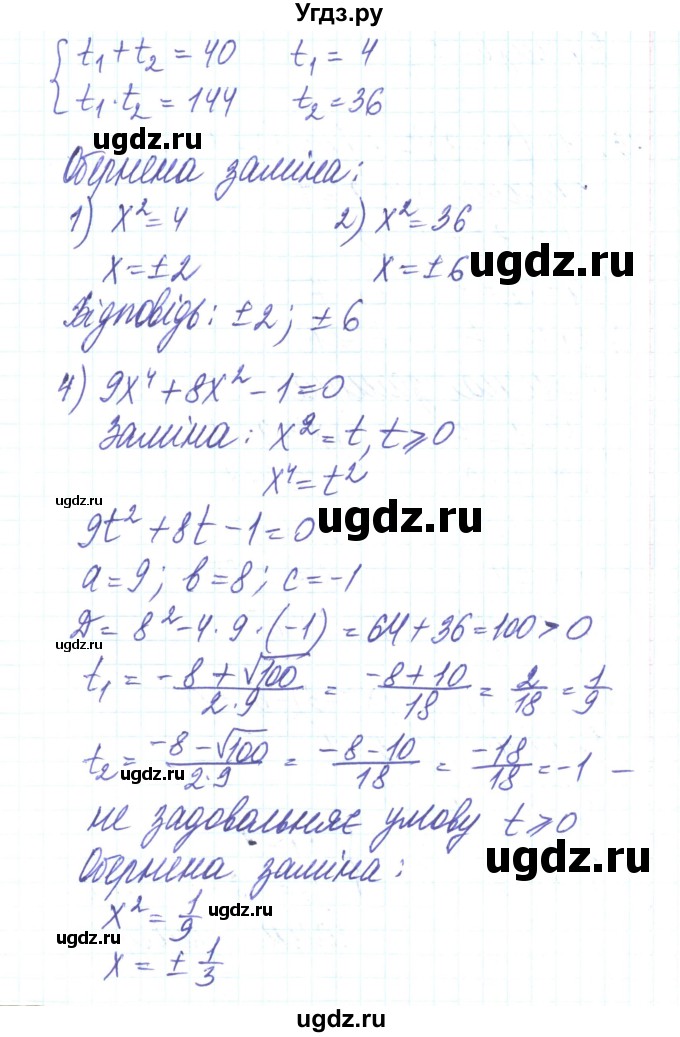 Угдз.ру
{ t₁ + t₂ = 40    t₁ = 4
t₁ · t₂ = 144    t₂ = 36
ugdz.ru
Обернена заміна:
1) x² = 4    2) x² = 36
x = ±2    x = ±6
ugdz.ru
Відповідь: ±2; ±6
4) 9x⁴ + 8x² - 1 = 0
Заміна: x² = t, t ⩾ 0
x⁴ = t²
ugdz.ru
ugdz.ru
9t² + 8t - 1 = 0
a = 9; b = 8; c = -1
D = 8² - 4 · 9 · (-1) = 64 + 36 = 100 > 0
ugdz.ru
t₁ = (-8 + √100)/(2·9) = (-8 + 10)/18 = 2/18 = 1/9
t₂ = (-8 - √100)/(2·9) = (-8 - 10)/18 = -18/18 = -1 –
ugdz.ru
не задовальняє умову t ⩾ 0
Обернена заміна:
ugdz.ru
x² = 1/9
ugdz.ru
ugdz.ru
x = ± 1/3
ugdz.ru